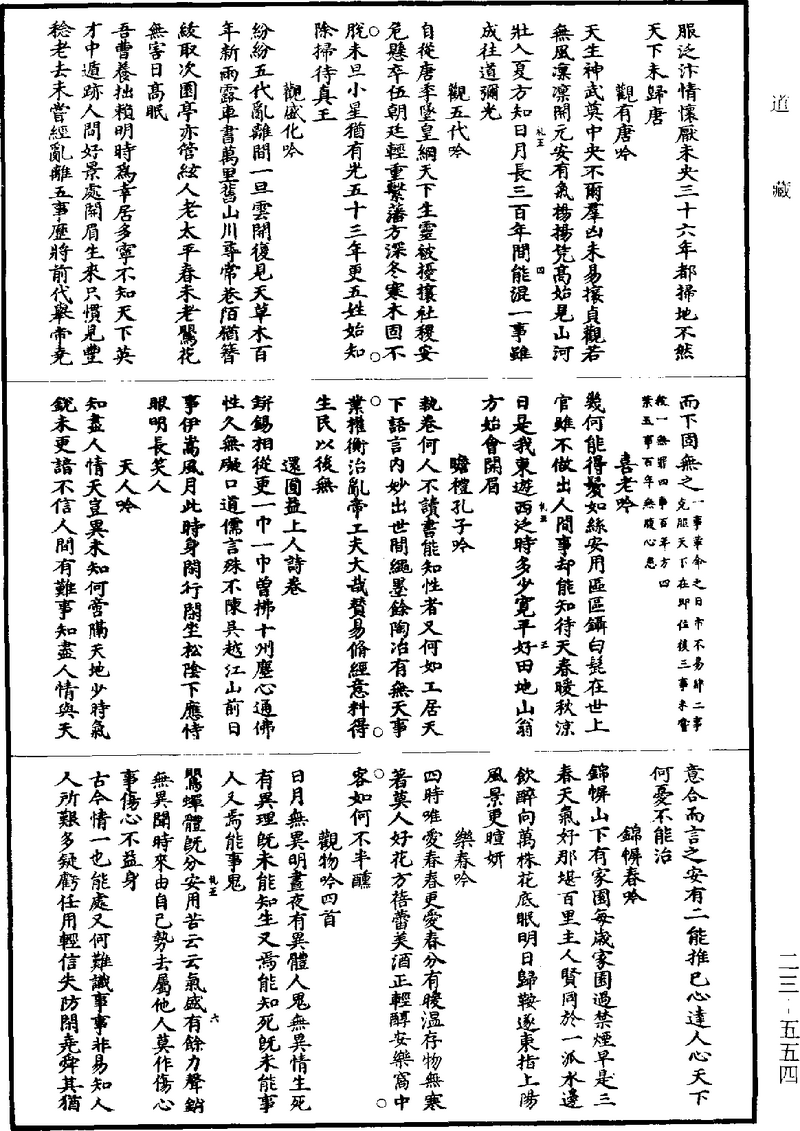 道藏
服泛汴情懷厭未央三十六年都掃地不然
天下未歸唐
觀有唐吟
天生神武奠中央不爾羣凶未易攘貞觀若
無風凛凛開元安有氣揚揚凭高始見山河
壯入夏方知日月長三百年間能混一事雖
成往道彌光
觀五代吟
自從唐季墜皇綱天下生靈被擾攘社稷安
危懸卒伍朝廷輕重繫藩方深冬寒木固不
脫未旦小星猶有光五十三年更五姓始知
除掃待真王
觀盛化吟
紛紛五代亂離間一旦雲開復見天草木百
年新雨露車書萬里舊山川尋常巷陌猶簪
紱取次園亭亦管絃人老太平春未老鸎花
無害日高眠
吾曹養拙賴明時爲幸居多寧不知天下英
才中遁跡人間好景處開眉生來只慣見豐
稔老去未嘗經亂離五事歷將前代舉帝堯
而下固無之
一事革命之日市不易肆二事
克服天下在即位後三事未嘗
殺一無罪四事百年方四
葉五事百年無腹心患
喜老吟
幾何能得鬢如絲安用區區鑷白髭在世上
官雖不做出人間事却能知待天春暖秋涼
日是我東遊西泛時多少寛平好田地山翁
方始會開眉
瞻禮孔子吟
執卷何人不讀書能知性者又何如工居天
下語言内妙出世間繩墨餘陶冶有無天事
業權衡治亂帝工夫大哉賛易脩經意料得
生民以後無
還圓益上人詩卷
缾錫相從更一巾一巾曾拂十州塵心通佛
性久無礙口道儒言殊不陳具越江山前日
事伊嵩風月此時身閒行閒坐松陰下應恃
眼明長笑人
天人吟
知盡人情天豈異未知何啻隔天地少時氣
銳未更諳不信人間有難事知盡人情與天
意合而言之安有二能推己心達人心天下
何憂不能治
錦幈春吟
錦幈山下有家園每歲家園過禁煙早是三
春天氣好那堪百里主人賢同於一派水邊
飲醉向萬株花底眠明日歸鞍遂東指上陽
風景更暄妍
樂春吟
四時唯愛春春更愛春分有暖温存物無寒
著莫人好花方蓓蕾美酒正輕醇安樂窩中
客如何不半醺
觀物吟四首
日月無異明晝夜有異體人鬼無異情生死
有異理旣未能知生又焉能知死旣未能事
人又焉能事鬼
鸎蟬體旣分安用苦云云氣盛有餘力聲銷
無異聞時來由自己勢去屬他人莫作傷心
事傷心不益身
古今情一也能處又何難識事事非易知人
人所艱多疑虧任用輕信失防閑堯舜其猶
二三-五五四